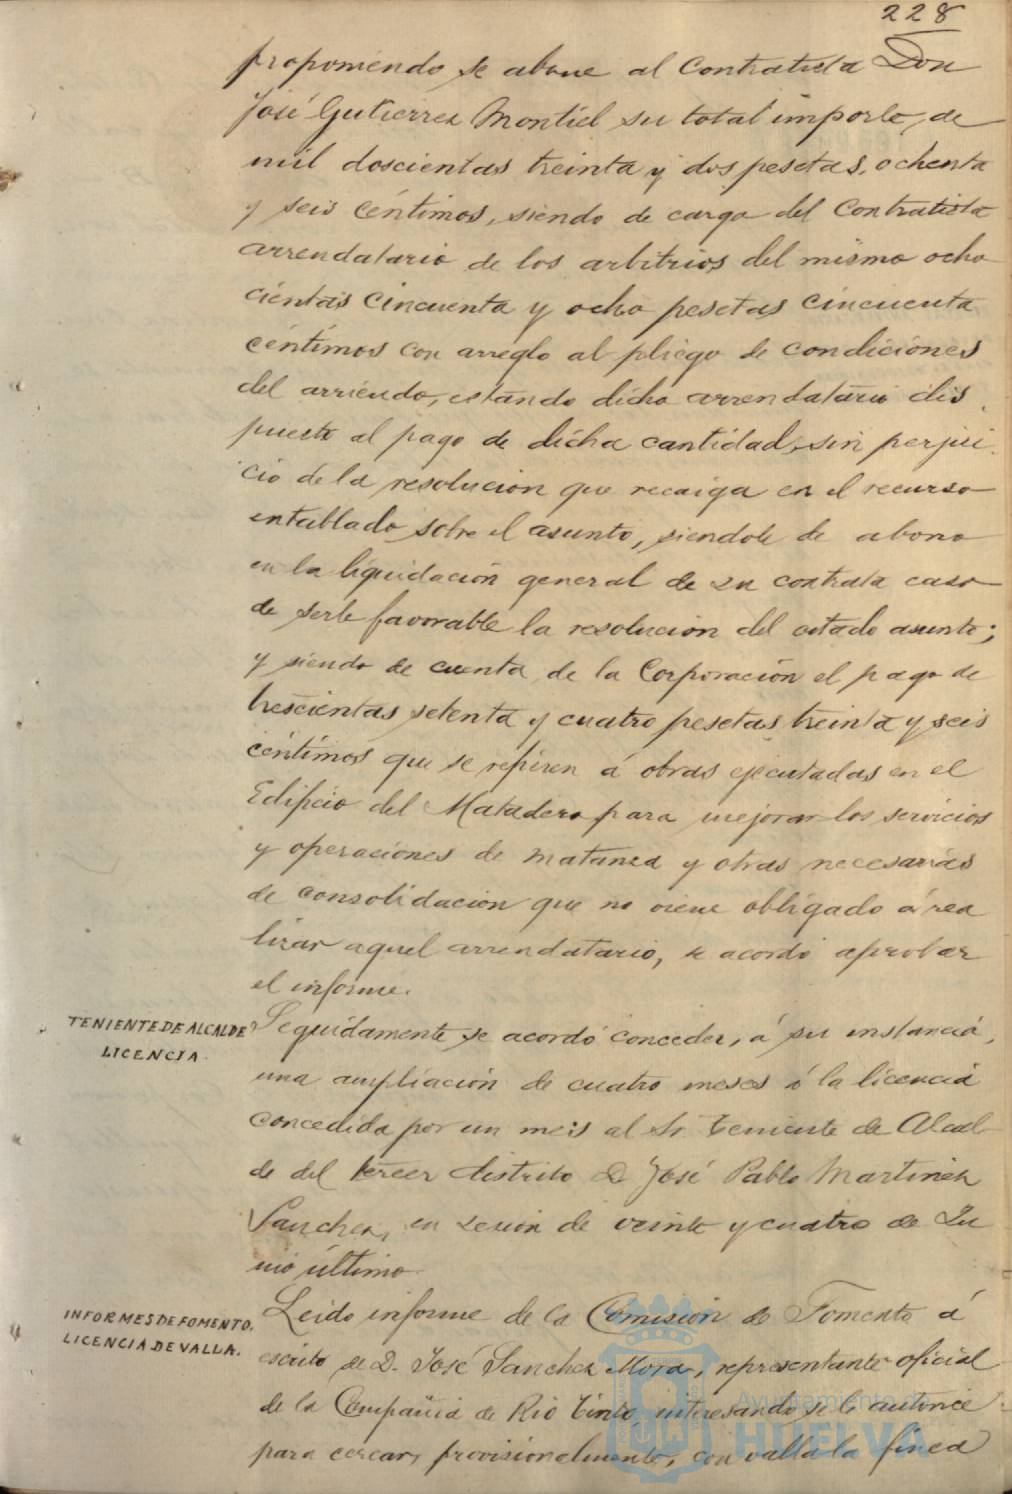 228
proponiendo se abone al Contratista Don
José Gutierrez Montiel su total importe, de
mil doscientas treinta y dos pesetas, ochenta
y seis céntimos, siendo de cargo del Contratista
arrendatario de los arbitrios del mismo ocho
cientas cincuenta y ocho pesetas cincuenta
céntimos con arreglo al pliego de condiciones
del arriendo, estando dicho arrendatario dis
puesto al pago de dicha cantidad, sin perjui
cio de la resolucion que recaiga en el recurso
entablado sobre el asunto, siendole de abono
en la liquidación general de su contrata caso
de serle favorable la resolucion del citado asunto;
y siendo de cuenta de la Corporación el pago de
trescientas setenta y cuatro pesetas treinta y seis
céntimos que se refieren á obras ejecutadas en el
Edificio del Matadero para mejorar los servicios
y operaciones de matanza y otras necesarias
de consolidacion que no viene obligado á rea
lizar aquel arrendatario, se acordó aprobar
el informe.
TENIENTE DE ALCALDE
LICENCIA.
Seguidamente se acordó conceder, á su instancia,
una ampliación de cuatro meses á la licencia
concedida por un mes al Sr Teniente de Alcal
de del tercer distrito D José Pablo Martinez
Sanchez, en sesion de veinte y cuatro de Ju
nio último
INFORMES DE FOMENTO.
LICENCIA DE VALLA.
Leido informe de la Comisión de Fomento á
escrito de D. José Sanchez Mora, representante oficial
de la Compañia de Rio Tinto interesando se le autorice
para cercar, provisionalmente, con valla la finca
Ayuntamiento de
HUELVA